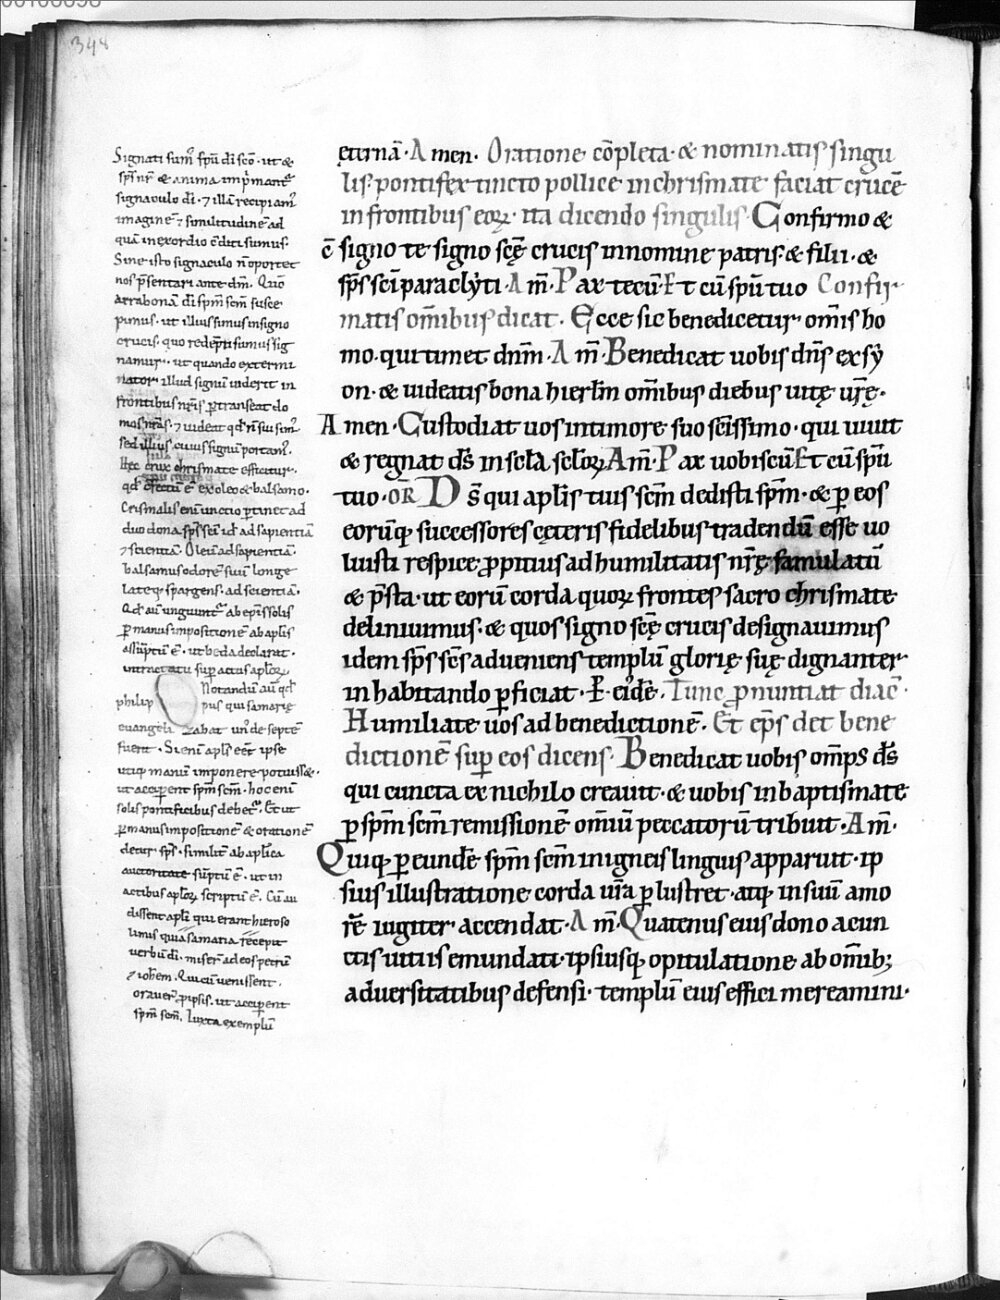 348
Signati sum᷒ spū di sc̄o · ut &
sp̄s nr̄ & anima imp̄mant᷒
signaculo di · ⁊ illā recipiam᷒
imaginē ⁊ similitudinē ad
quā in exordio c̄diti sumus ·
Sine isto signaculo n̄ oportet
nos p̄sentari ante dm̄ · Quō
arrabonā di sp̄m sc̄m susce
pimus · ut illius simus insigno
crucis · quo redēpti sumus sig
namur · ut quando extermi
nator illud signū uiderit in
frontibus nr̄is ꝑtranseat do
mos nr̄as · ⁊ uideat qd̄ n̄ sui sum᷒
sed illius cuius signū portam᷒ ·
Hec crux chrismate efficitur ·
qd̄ ē ex oleo & balsamo ·
Crismalis enī unctio ꝑtinet ad
duo dona sp̄s sc̄i id̄ ad sapientiā
⁊ scientiā · Oleū ad sapientiā ·
balsamus odore suū longe
lateq; spargens · ad scientiā ·
Qd̄ aū unguunt᷒ ab ep̄is solis
ꝑ manus impositionē ab apl̄is
assūptū ē · ut beda declarat ·
in tractatu suꝑ actus apl̄oꝝ
Notandū aū qd̄
philip pus qui samarię
euangeli zabat un᷒ de septē
fuerit · Si enī apl̄s eēt ipse
utiq; manū imponere potuiss& ·
ut acciperent sp̄m sc̄m · hoc enī
solis pontificibus debet᷒ · Et ut
ꝑ manus impositionē & orationē
detur sp̄s · similit᷒ ab apl̄ica
auctoritate sūptū ē · ut in
actibus apl̄oꝝ scriptū ē · Cū au
dissent apl̄i qui erant hieroso
limis quia samaria recepit
uerbū di · miser᷒ ad eos petrū
⁊ ioh̄em · Qui cū uenissent ·
orauer᷒ ꝓ ipsis · ut acciperent
sp̄m sc̄m · Iuxta exemplū
ęternā · Amen · Oratione cōpleta · & nominatis singu
lis · pontifex tincto pollice in chrismate faciat crucē
in frontibus eoꝝ · ita dicendo singulis · Confirmo &
c̄signo te signo scę̄ crucis innomine patris · & filii · &
sp̄s sc̄i paraclyti · Am̄ · Pax tecū · Et cū spū tuo Confir
matis om̄ibus dicat · Ecce sic benedicetur om̄is ho
mo · qui timet dn̄m · Am̄ · Benedicat uobis dn̄s ex sy
on · & uideatis bona hierl̄m om̄ibus diebus uitę ur̄ę ·
Amen · Custodiat uos intimore suo sc̄issimo · qui uiuit
& regnat ds̄ in scl̄a scl̄oꝝ Am̄ · Pax uobiscū Et cū spū
tuo · OR̄ Ds̄ qui apl̄is tuis sc̄m dedisti sp̄m · & ꝑ eos
eorūq; successores cęteris fidelibus tradendū esse uo
luisti respice ꝓpitius ad humilitatis nr̄ę famulatū
& p̄sta · ut eorū corda quoꝝ frontes sacro chrismate
deliniuimus · & quos signo scę̄ crucis designauimus
idem sp̄s sc̄s adueniens templū glorię suę dignanter
in habitando ꝑficiat · P eūdē · Tunc ꝓnuntiat diac̄ ·
Humiliate uos ad benedictionē · Et ep̄s det bene
dictionē suꝑ eos dicens · Benedicat uobis om̄ps ds̄
qui cuncta ex nichilo creauit · & uobis in baptismate
ꝑ sp̄m sc̄m remissionē om̄iū peccatorū tribuit · Am̄ ·
Quiq; ꝑ eundē sp̄m sc̄m in igneis linguis apparuit · ip
sius illustratione corda ur̄a ꝑlustret · atq; in suū amo
rē iugiter accendat · Am̄ · Quatenus eius dono a cun
ctis uitiis emundati · ipsiusq; opitulatione ab om̄ib;
aduersitatibus defensi · templū eius effici mereamini ·